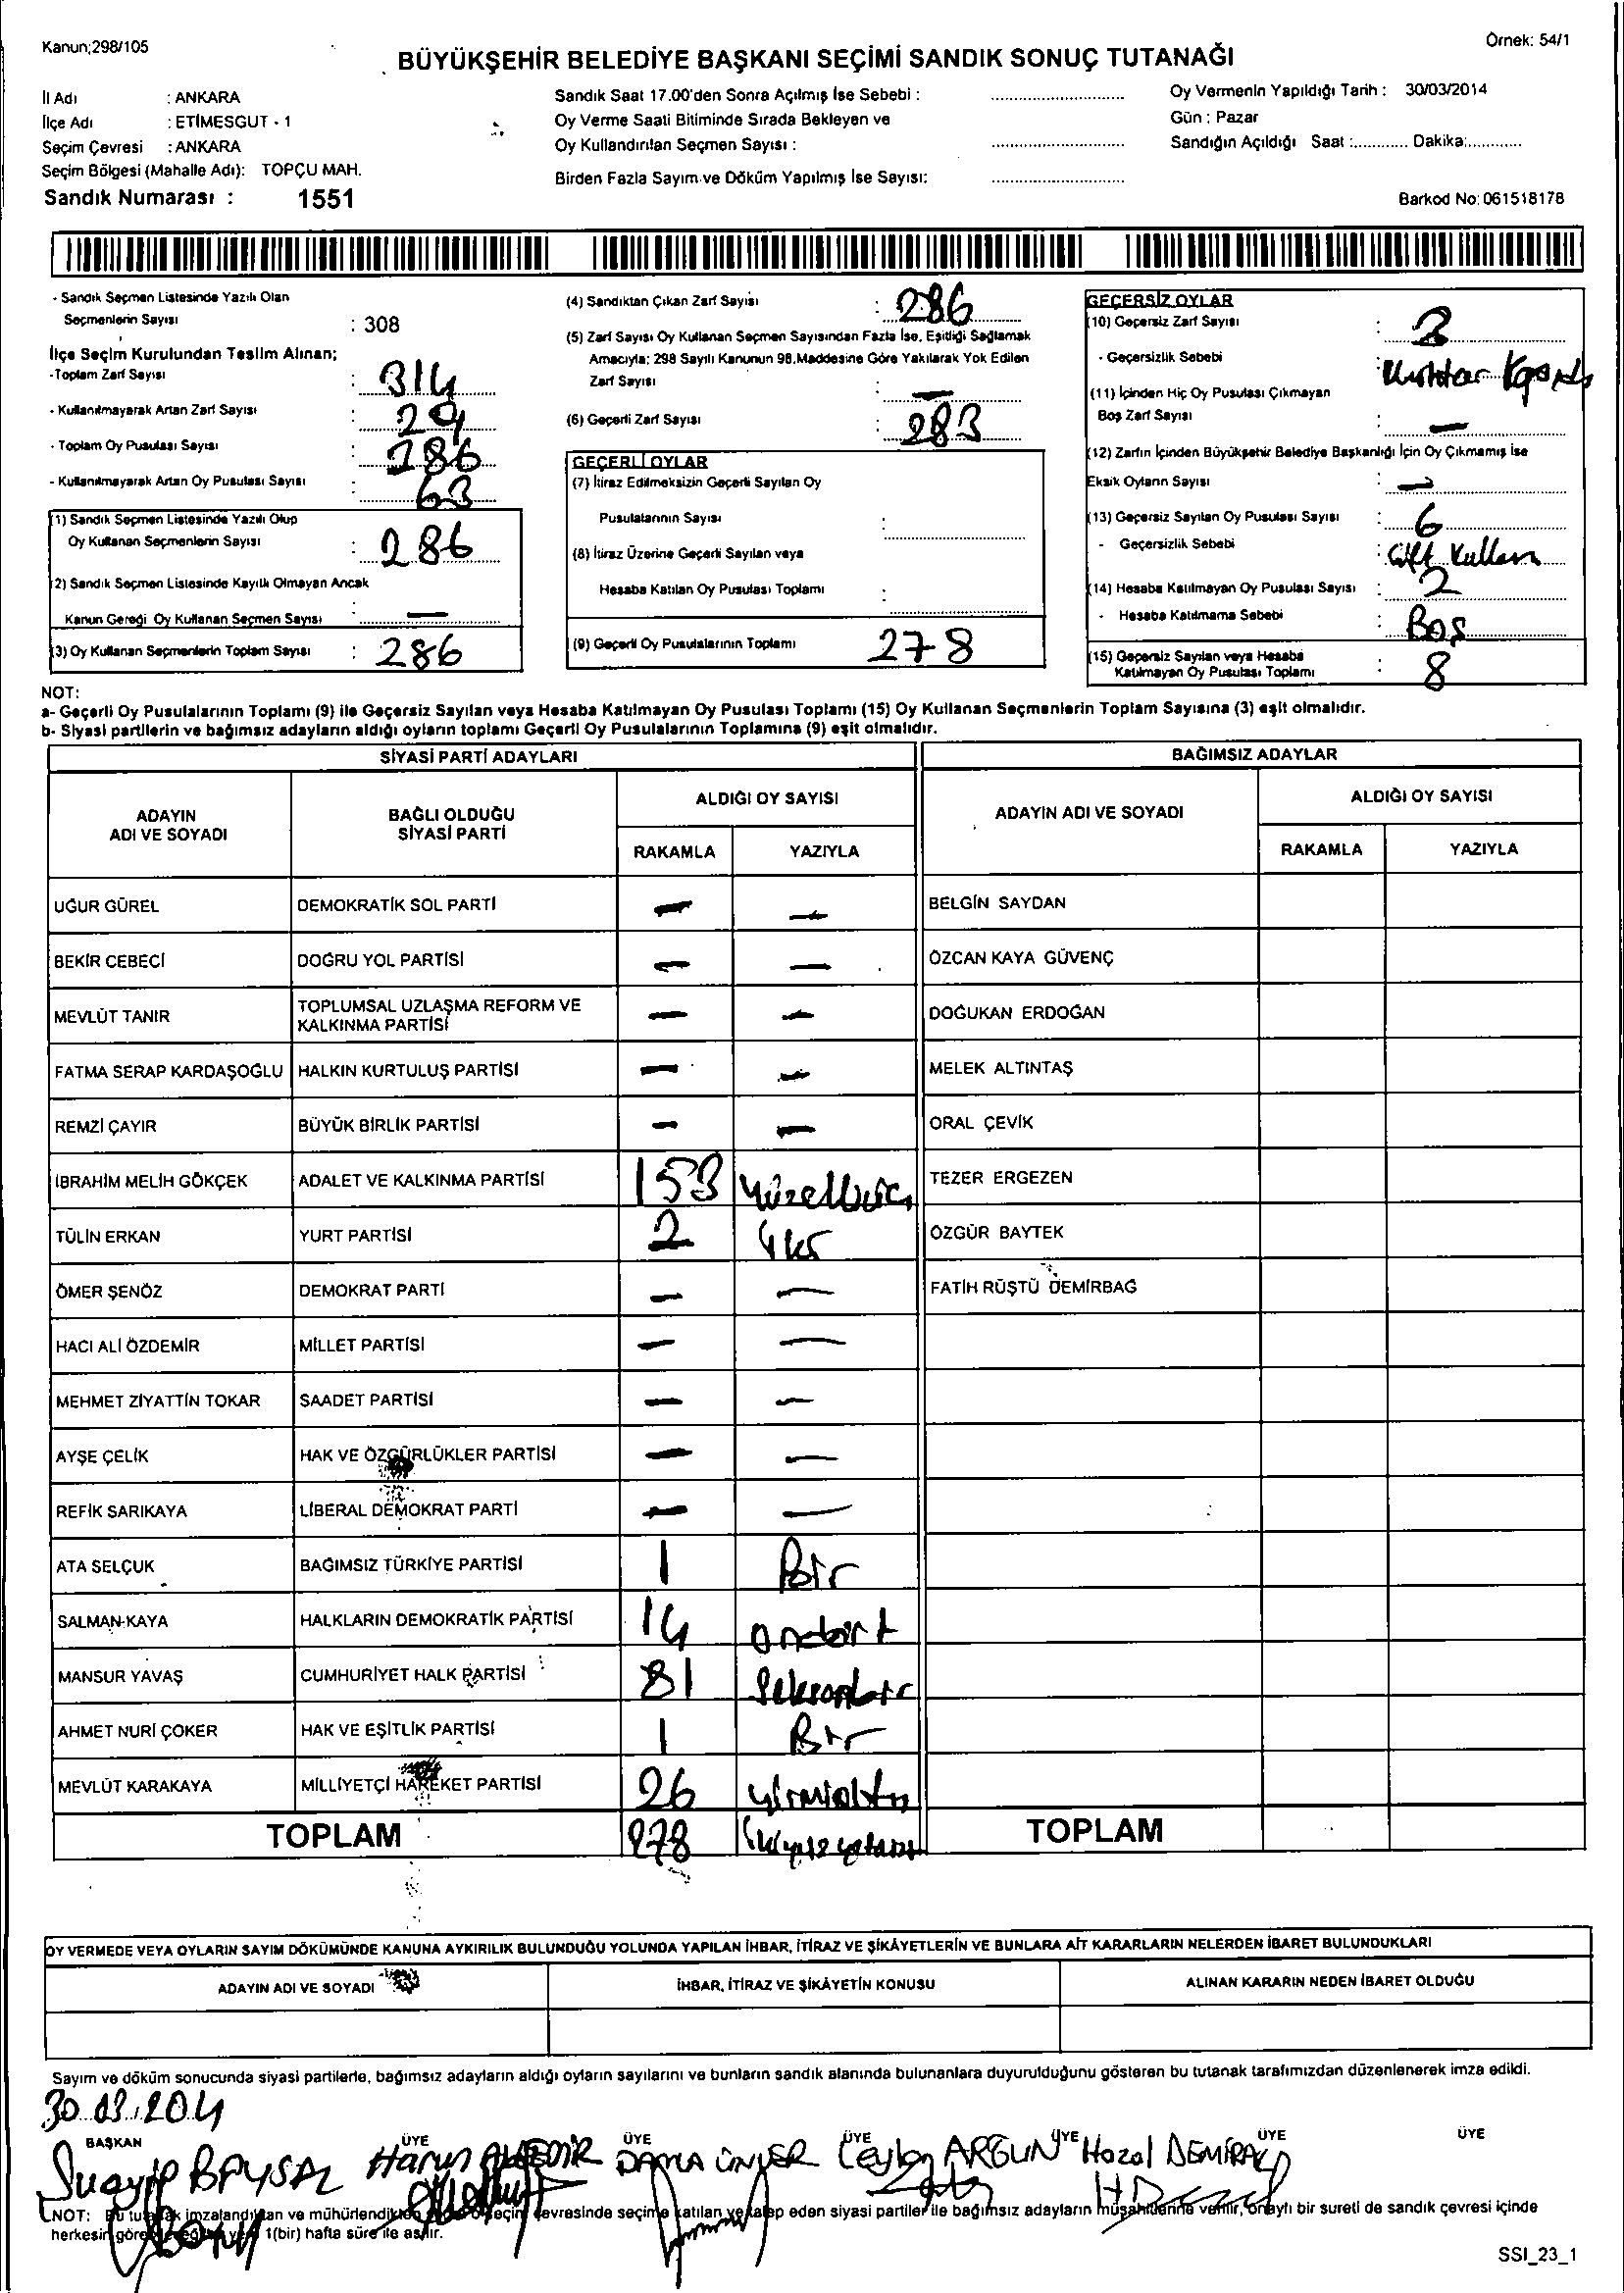 Kanun;298/105
Örnek: 54/1
BÜYÜKŞEHİR BELEDİYE BAŞKANI SEÇİMİ SANDIK SONUÇ TUTANAĞI
İl Adı : ANKARA
İlçe Adı : ETİMESGUT - 1
Seçim Çevresi : ANKARA
Seçim Bölgesi (Mahalle Adı): TOPÇU MAH.
Sandık Numarası : 1551
Sandık Saat 17.00'den Sonra Açılmış İse Sebebi :
Oy Verme Saati Bitiminde Sırada Bekleyen ve
Oy Kullandırılan Seçmen Sayısı :
Birden Fazla Sayım ve Döküm Yapılmış İse Sayısı:
Oy Vermenin Yapıldığı Tarih : 30/03/2014
Gün : Pazar
Sandığın Açıldığı Saat :............ Dakika:............
Barkod No: 061518178
- Sandık Seçmen Listesinde Yazılı Olan
Seçmenlerin Sayısı : 308
İlçe Seçim Kurulundan Teslim Alınan;
-Toplam Zarf Sayısı : 314
- Kullanılmayarak Artan Zarf Sayısı : 29
- Toplam Oy Pusulası Sayısı : 286
- Kullanılmayarak Artan Oy Pusulası Sayısı : 63
(1) Sandık Seçmen Listesinde Yazılı Olup
Oy Kullanan Seçmenlerin Sayısı : 286
(2) Sandık Seçmen Listesinde Kayıtlı Olmayan Ancak
Kanun Gereği Oy Kullanan Seçmen Sayısı : —
(3) Oy Kullanan Seçmenlerin Toplam Sayısı : 286
(4) Sandıktan Çıkan Zarf Sayısı : 286
(5) Zarf Sayısı Oy Kullanan Seçmen Sayısından Fazla İse, Eşitliği Sağlamak
Amacıyla; 298 Sayılı Kanunun 98.Maddesine Göre Yakılarak Yok Edilen
Zarf Sayısı : —
(6) Geçerli Zarf Sayısı : 283
GEÇERLİ OYLAR
(7) İtiraz Edilmeksizin Geçerli Sayılan Oy
Pusulalarının Sayısı :
(8) İtiraz Üzerine Geçerli Sayılan veya
Hesaba Katılan Oy Pusulası Toplamı :
(9) Geçerli Oy Pusulalarının Toplamı 278
GEÇERSİZ OYLAR
(10) Geçersiz Zarf Sayısı : 3
- Geçersizlik Sebebi : Muhtar
(11) İçinden Hiç Oy Pusulası Çıkmayan
Boş Zarf Sayısı : —
(12) Zarfın İçinden Büyükşehir Belediye Başkanlığı İçin Oy Çıkmamış İse
Eksik Oyların Sayısı : —
(13) Geçersiz Sayılan Oy Pusulası Sayısı : 6
- Geçersizlik Sebebi : Çift Kullan
(14) Hesaba Katılmayan Oy Pusulası Sayısı : 2
- Hesaba Katılmama Sebebi : Boş
(15) Geçersiz Sayılan veya Hesaba
Katılmayan Oy Pusulası Toplamı : 8
NOT:
a- Geçerli Oy Pusulalarının Toplamı (9) ile Geçersiz Sayılan veya Hesaba Katılmayan Oy Pusulası Toplamı (15) Oy Kullanan Seçmenlerin Toplam Sayısına (3) eşit olmalıdır.
b- Siyasi partilerin ve bağımsız adayların aldığı oyların toplamı Geçerli Oy Pusulalarının Toplamına (9) eşit olmalıdır.
SİYASİ PARTİ ADAYLARI BAĞIMSIZ ADAYLAR
ADAYIN ADI VE SOYADI
BAĞLI OLDUĞU SİYASİ PARTİ
ALDIĞI OY SAYISI
RAKAMLA YAZIYLA
ADAYIN ADI VE SOYADI
ALDIĞI OY SAYISI
RAKAMLA YAZIYLA
UĞUR GÜREL DEMOKRATİK SOL PARTİ — — BELGİN SAYDAN
BEKİR CEBECİ DOĞRU YOL PARTİSİ — — ÖZCAN KAYA GÜVENÇ
MEVLÜT TANIR TOPLUMSAL UZLAŞMA REFORM VE KALKINMA PARTİSİ — — DOĞUKAN ERDOĞAN
FATMA SERAP KARDAŞOĞLU HALKIN KURTULUŞ PARTİSİ — — MELEK ALTINTAŞ
REMZİ ÇAYIR BÜYÜK BİRLİK PARTİSİ — — ORAL ÇEVİK
İBRAHİM MELİH GÖKÇEK ADALET VE KALKINMA PARTİSİ 153 Yüzelliüç TEZER ERGEZEN
TÜLİN ERKAN YURT PARTİSİ 2 iki ÖZGÜR BAYTEK
ÖMER ŞENÖZ DEMOKRAT PARTİ — — FATİH RÜŞTÜ DEMİRBAĞ
HACI ALİ ÖZDEMİR MİLLET PARTİSİ — —
MEHMET ZİYATTİN TOKAR SAADET PARTİSİ — —
AYŞE ÇELİK HAK VE ÖZGÜRLÜKLER PARTİSİ — —
REFİK SARIKAYA LİBERAL DEMOKRAT PARTİ — —
ATA SELÇUK BAĞIMSIZ TÜRKİYE PARTİSİ 1 Bir
SALMAN KAYA HALKLARIN DEMOKRATİK PARTİSİ 14 ondört
MANSUR YAVAŞ CUMHURİYET HALK PARTİSİ 81 Seksenbir
AHMET NURİ ÇOKER HAK VE EŞİTLİK PARTİSİ 1 Bir
MEVLÜT KARAKAYA MİLLİYETÇİ HAREKET PARTİSİ 26 yirmialtı
TOPLAM 278 TOPLAM
OY VERMEDE VEYA OYLARIN SAYIM DÖKÜMÜNDE KANUNA AYKIRILIK BULUNDUĞU YOLUNDA YAPILAN İHBAR, İTİRAZ VE ŞİKÂYETLERİN VE BUNLARA AİT KARARLARIN NELERDEN İBARET BULUNDUKLARI
ADAYIN ADI VE SOYADI İHBAR, İTİRAZ VE ŞİKÂYETİN KONUSU ALINAN KARARIN NEDEN İBARET OLDUĞU
Sayım ve döküm sonucunda siyasi partilerle, bağımsız adayların aldığı oyların sayılarını ve bunların sandık alanında bulunanlara duyurulduğunu gösteren bu tutanak tarafımızdan düzenlenerek imza edildi.
30.03.2014
BAŞKAN ÜYE ÜYE ÜYE ÜYE ÜYE ÜYE
Şuayip BAYSAL Harun DAMLA ÜNVER Ceylan ARGUN Hazal DEMİRALP
NOT: Bu tutanak imzalandıktan ve mühürlendikten seçim çevresinde seçime katılan ve talep eden siyasi partiler ile bağımsız adayların müşahitlerine verilir, onaylı bir sureti de sandık çevresi içinde
herkesin 1(bir) hafta süre ile asılır.
SSI_23_1